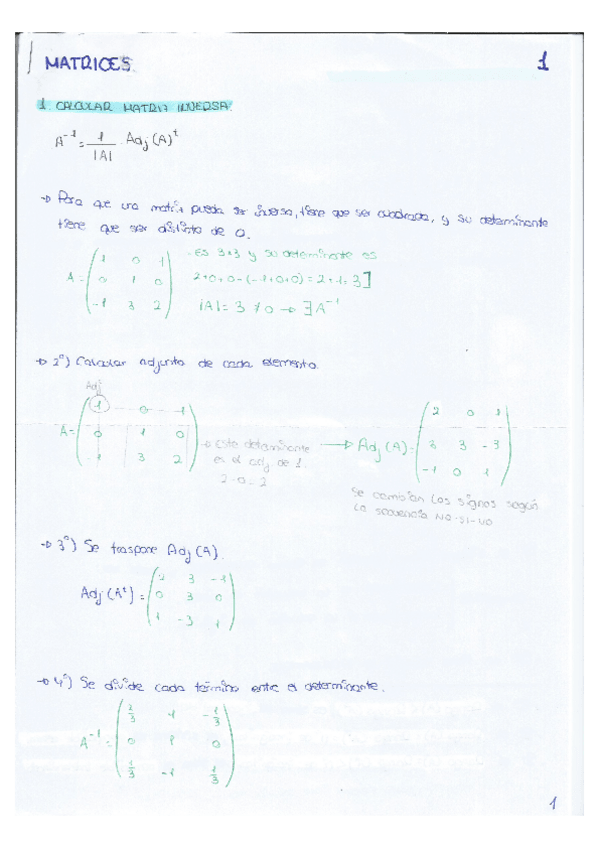 MATRICES. 1
1. CALCULAR MATRIZ INVERSA.
A⁻¹ = 1/|A| · Adj (A)ᵗ
→ Para que una matriz pueda ser inversa, tiene que ser cuadrada, y su determinante
tiene que ser distinto de 0.
1 0 1 - Es 3x3 y su determinante es
A = 0 1 0 2+0+0-(-1+0+0) = 2+1 = 3]
-1 3 2 |A| = 3 ≠ 0 → ∃A⁻¹
→ 2º) Calcular adjunto de cada elemento.
Adj
1 0 1 2 0 1
A = 0 1 0 → Este determinante → Adj (A) = 3 3 -3
-1 3 2 es el adj de 1. -1 0 1
2-0=2
Se cambian los signos según
la secuencia NO-SI-NO
→ 3º) Se traspone Adj (A).
2 3 -1
Adj (Aᵗ) = 0 3 0
1 -3 1
→ 4º) Se divide cada término entre el determinante.
2/3 1 -1/3
A⁻¹ = 0 1 0
1/3 -1 1/3
1